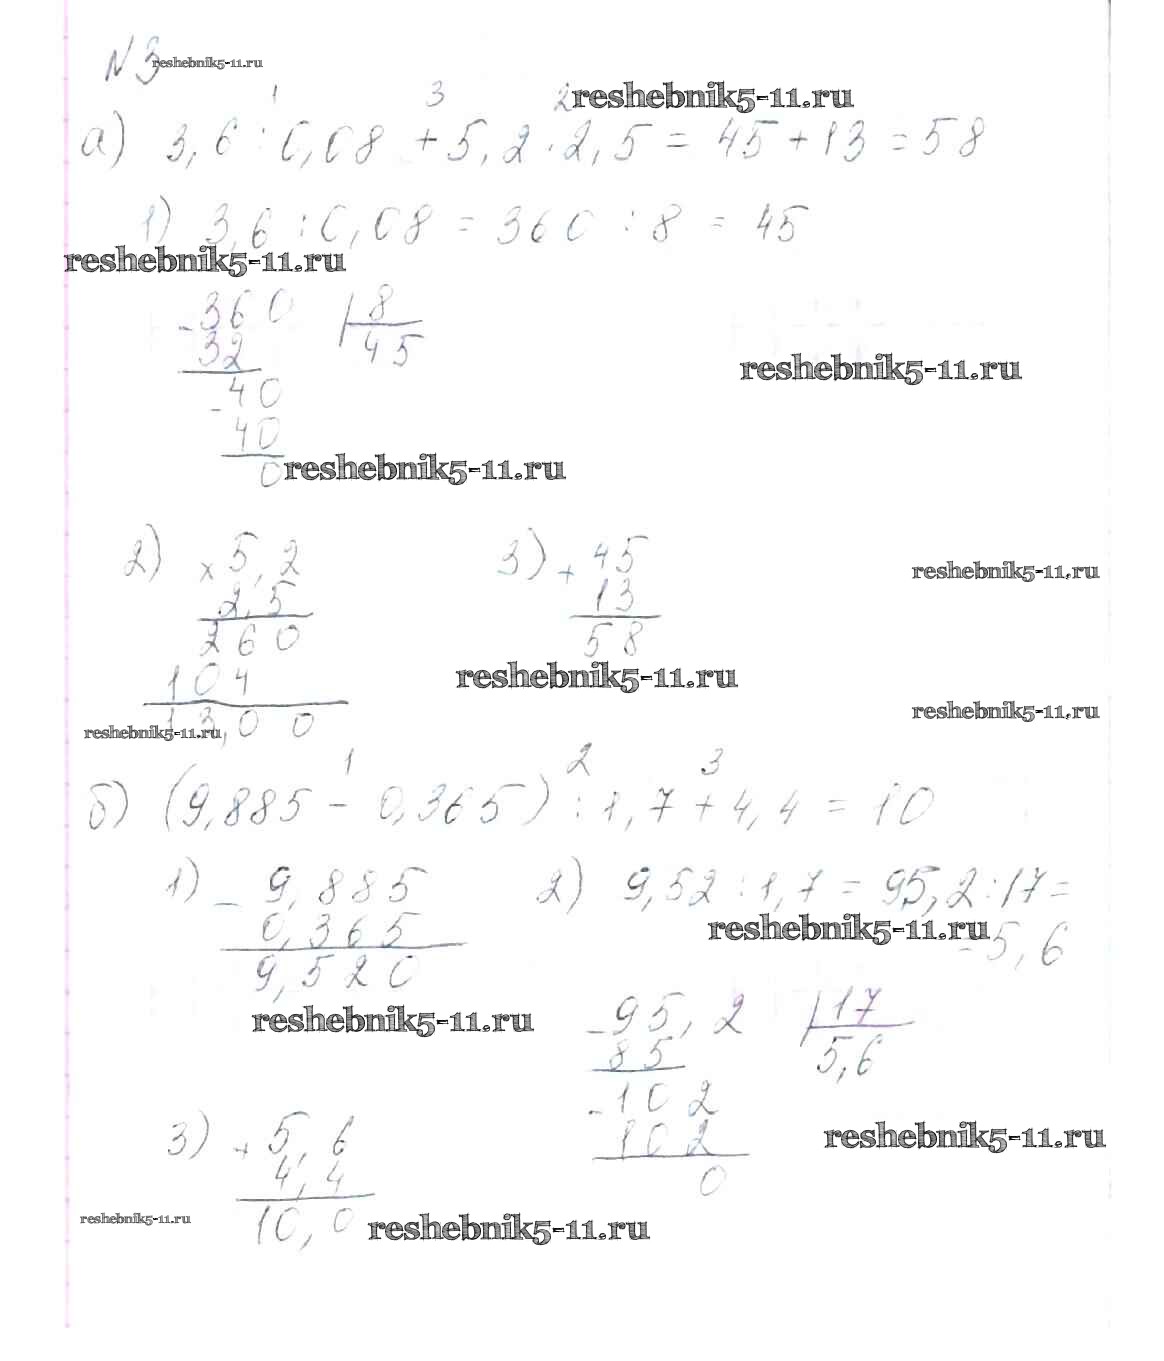 №3 reshebnik5-11.ru
1 3 2 reshebnik5-11.ru
а) 3,6 : 0,08 + 5,2 · 2,5 = 45 + 13 = 58
1) 3,6 : 0,08 = 360 : 8 = 45
reshebnik5-11.ru
- 360 8
32 45
reshebnik5-11.ru
- 40
40
0 reshebnik5-11.ru
2) × 5,2 3) + 45
reshebnik5-11.ru
2,5 13
260 58
104 reshebnik5-11.ru
reshebnik5-11.ru
13,00
reshebnik5-11.ru
1 2 3
б) (9,885 - 0,365) : 1,7 + 4,4 = 10
1) - 9,885 2) 9,52 : 1,7 = 95,2 : 17 =
0,365 reshebnik5-11.ru
= 5,6
9,520
reshebnik5-11.ru
- 95,2 17
85 5,6
- 102
3) + 5,6 102 reshebnik5-11.ru
4,4 0
reshebnik5-11.ru
10,0 reshebnik5-11.ru